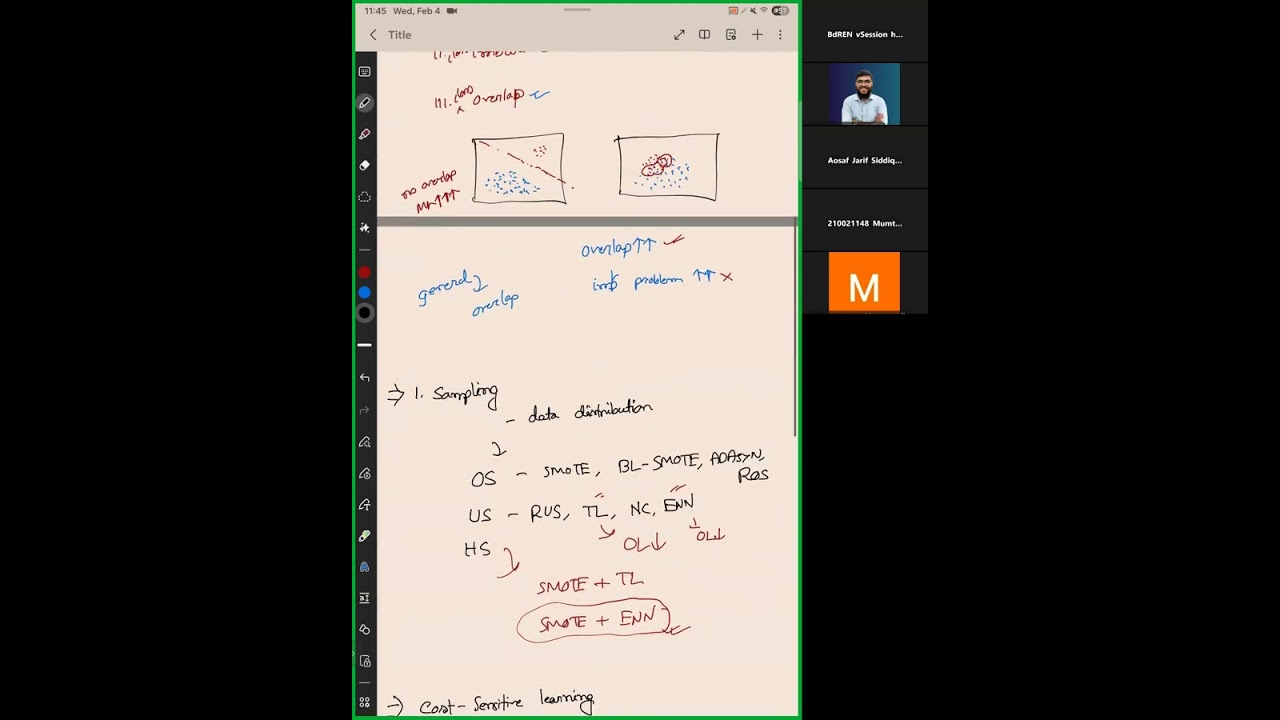 11:45 Wed, Feb 4
Title
III. class overlap
no overlap
overlap↑↑
imb problem ↑↑ ×
general
overlap
⇒ 1. Sampling
- data distribution
OS - SMOTE, BL-SMOTE, ADASYN,
ROS
US - RUS, TL, NC, ENN
OL↓ OL↓
HS
SMOTE + TL
SMOTE + ENN
⇒ Cost-Sensitive learning
BdREN vSession h...
Aosaf Jarif Siddiq...
210021148 Mumt...
M